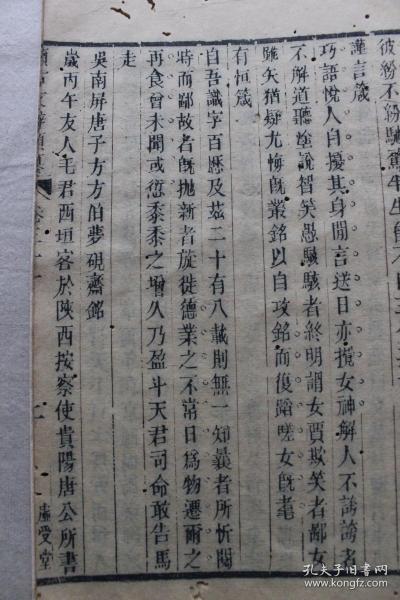 謹言箴
巧語悅人自擾其身閒言送日亦攪女神解人不誇誇者
不解道聽塗說智笑愚駭駭者終明謂女賈欺笑者鄙女
雖矢猶疑尤悔既叢銘以自攻銘而復蹈嗟女既耄
有恒箴
自吾識字百歷及茲二十有八載則無一知曩者所忻閱
時而鄙故者既拋新者旋徙德業之不常日為物遷爾之
再食曾未聞或愆黍黍之增久乃盈斗天君司命敢告馬
走
吳南屏唐子方方伯夢硯齋銘
歲丙午友人毛君西垣客於陝西按察使貴陽唐公所書
虛受堂
孔夫子旧书网
www.kongfz.com